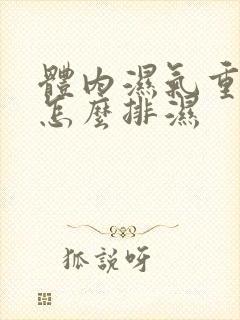 體內濕氣重
怎麼排濕
狐說呀